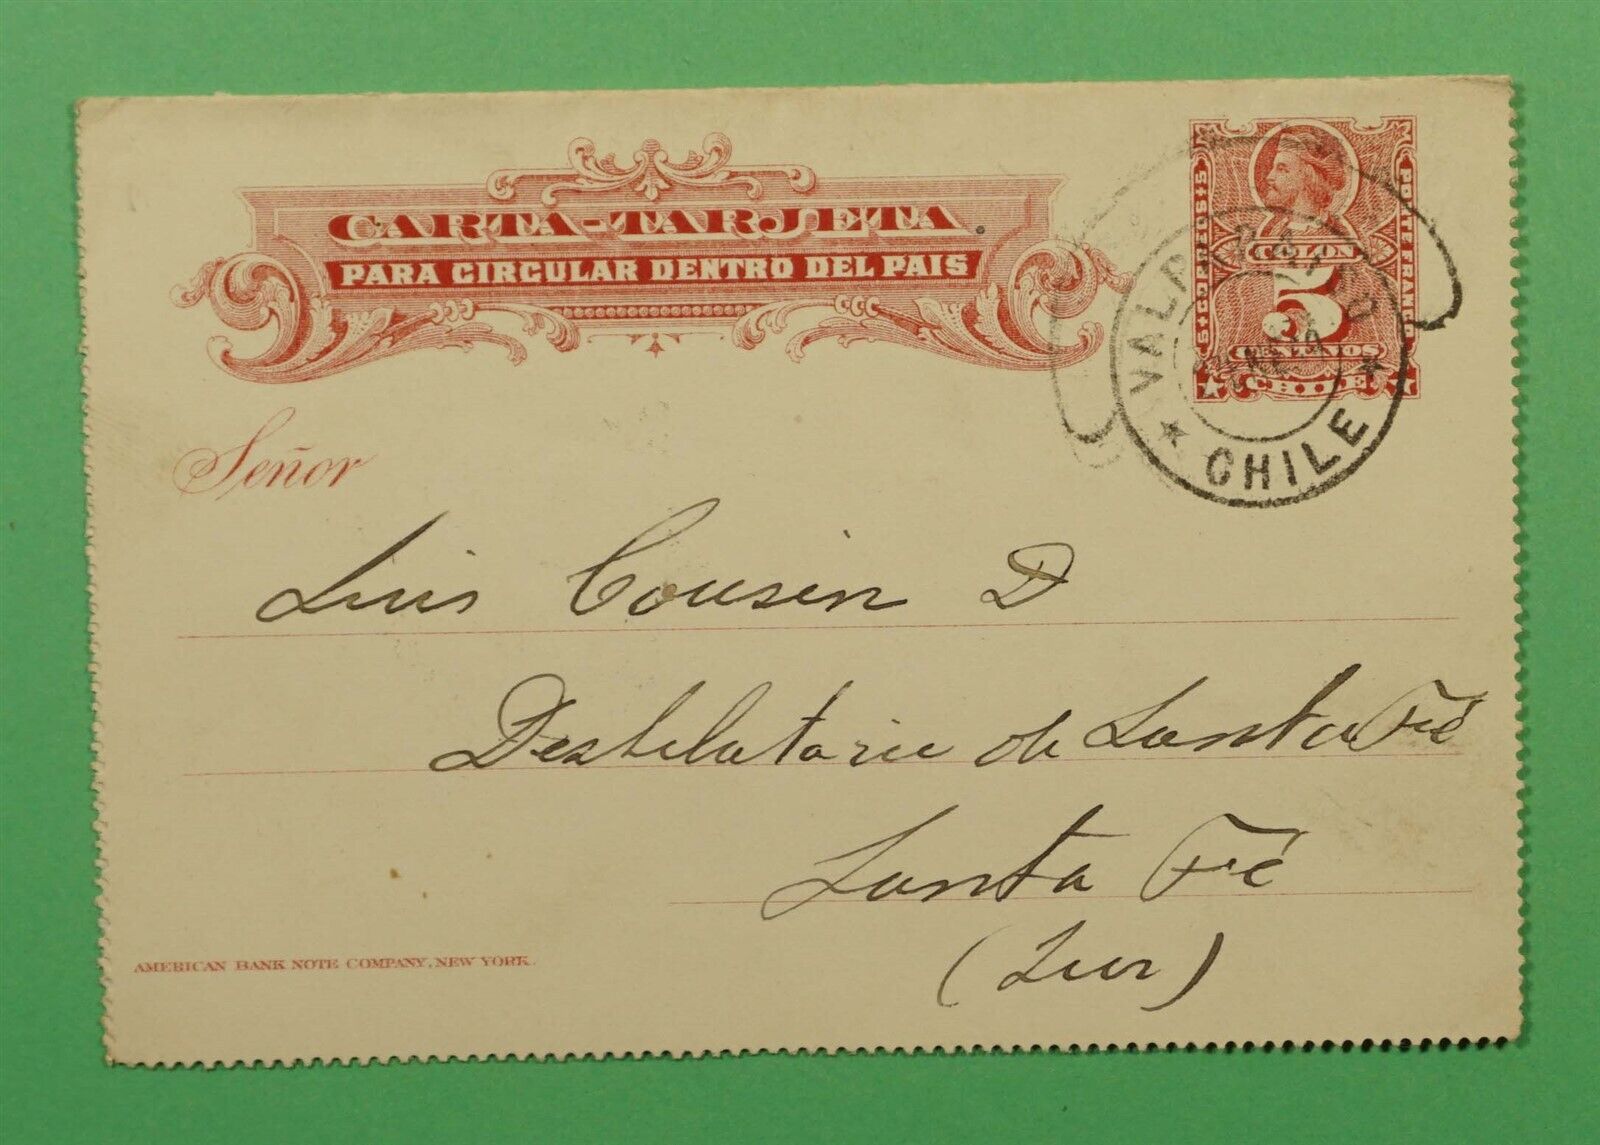 CARTA-TARJETA
PARA CIRCULAR DENTRO DEL PAIS
CORREOS
PORTE FRANCO
COLON
5
CENTAVOS
CHILE
VALPARAISO
CHILE
Señor
Luis Cousin D
Destilatorio de Santa Fé
Santa Fé
(Sur)
AMERICAN BANK NOTE COMPANY, NEW YORK.